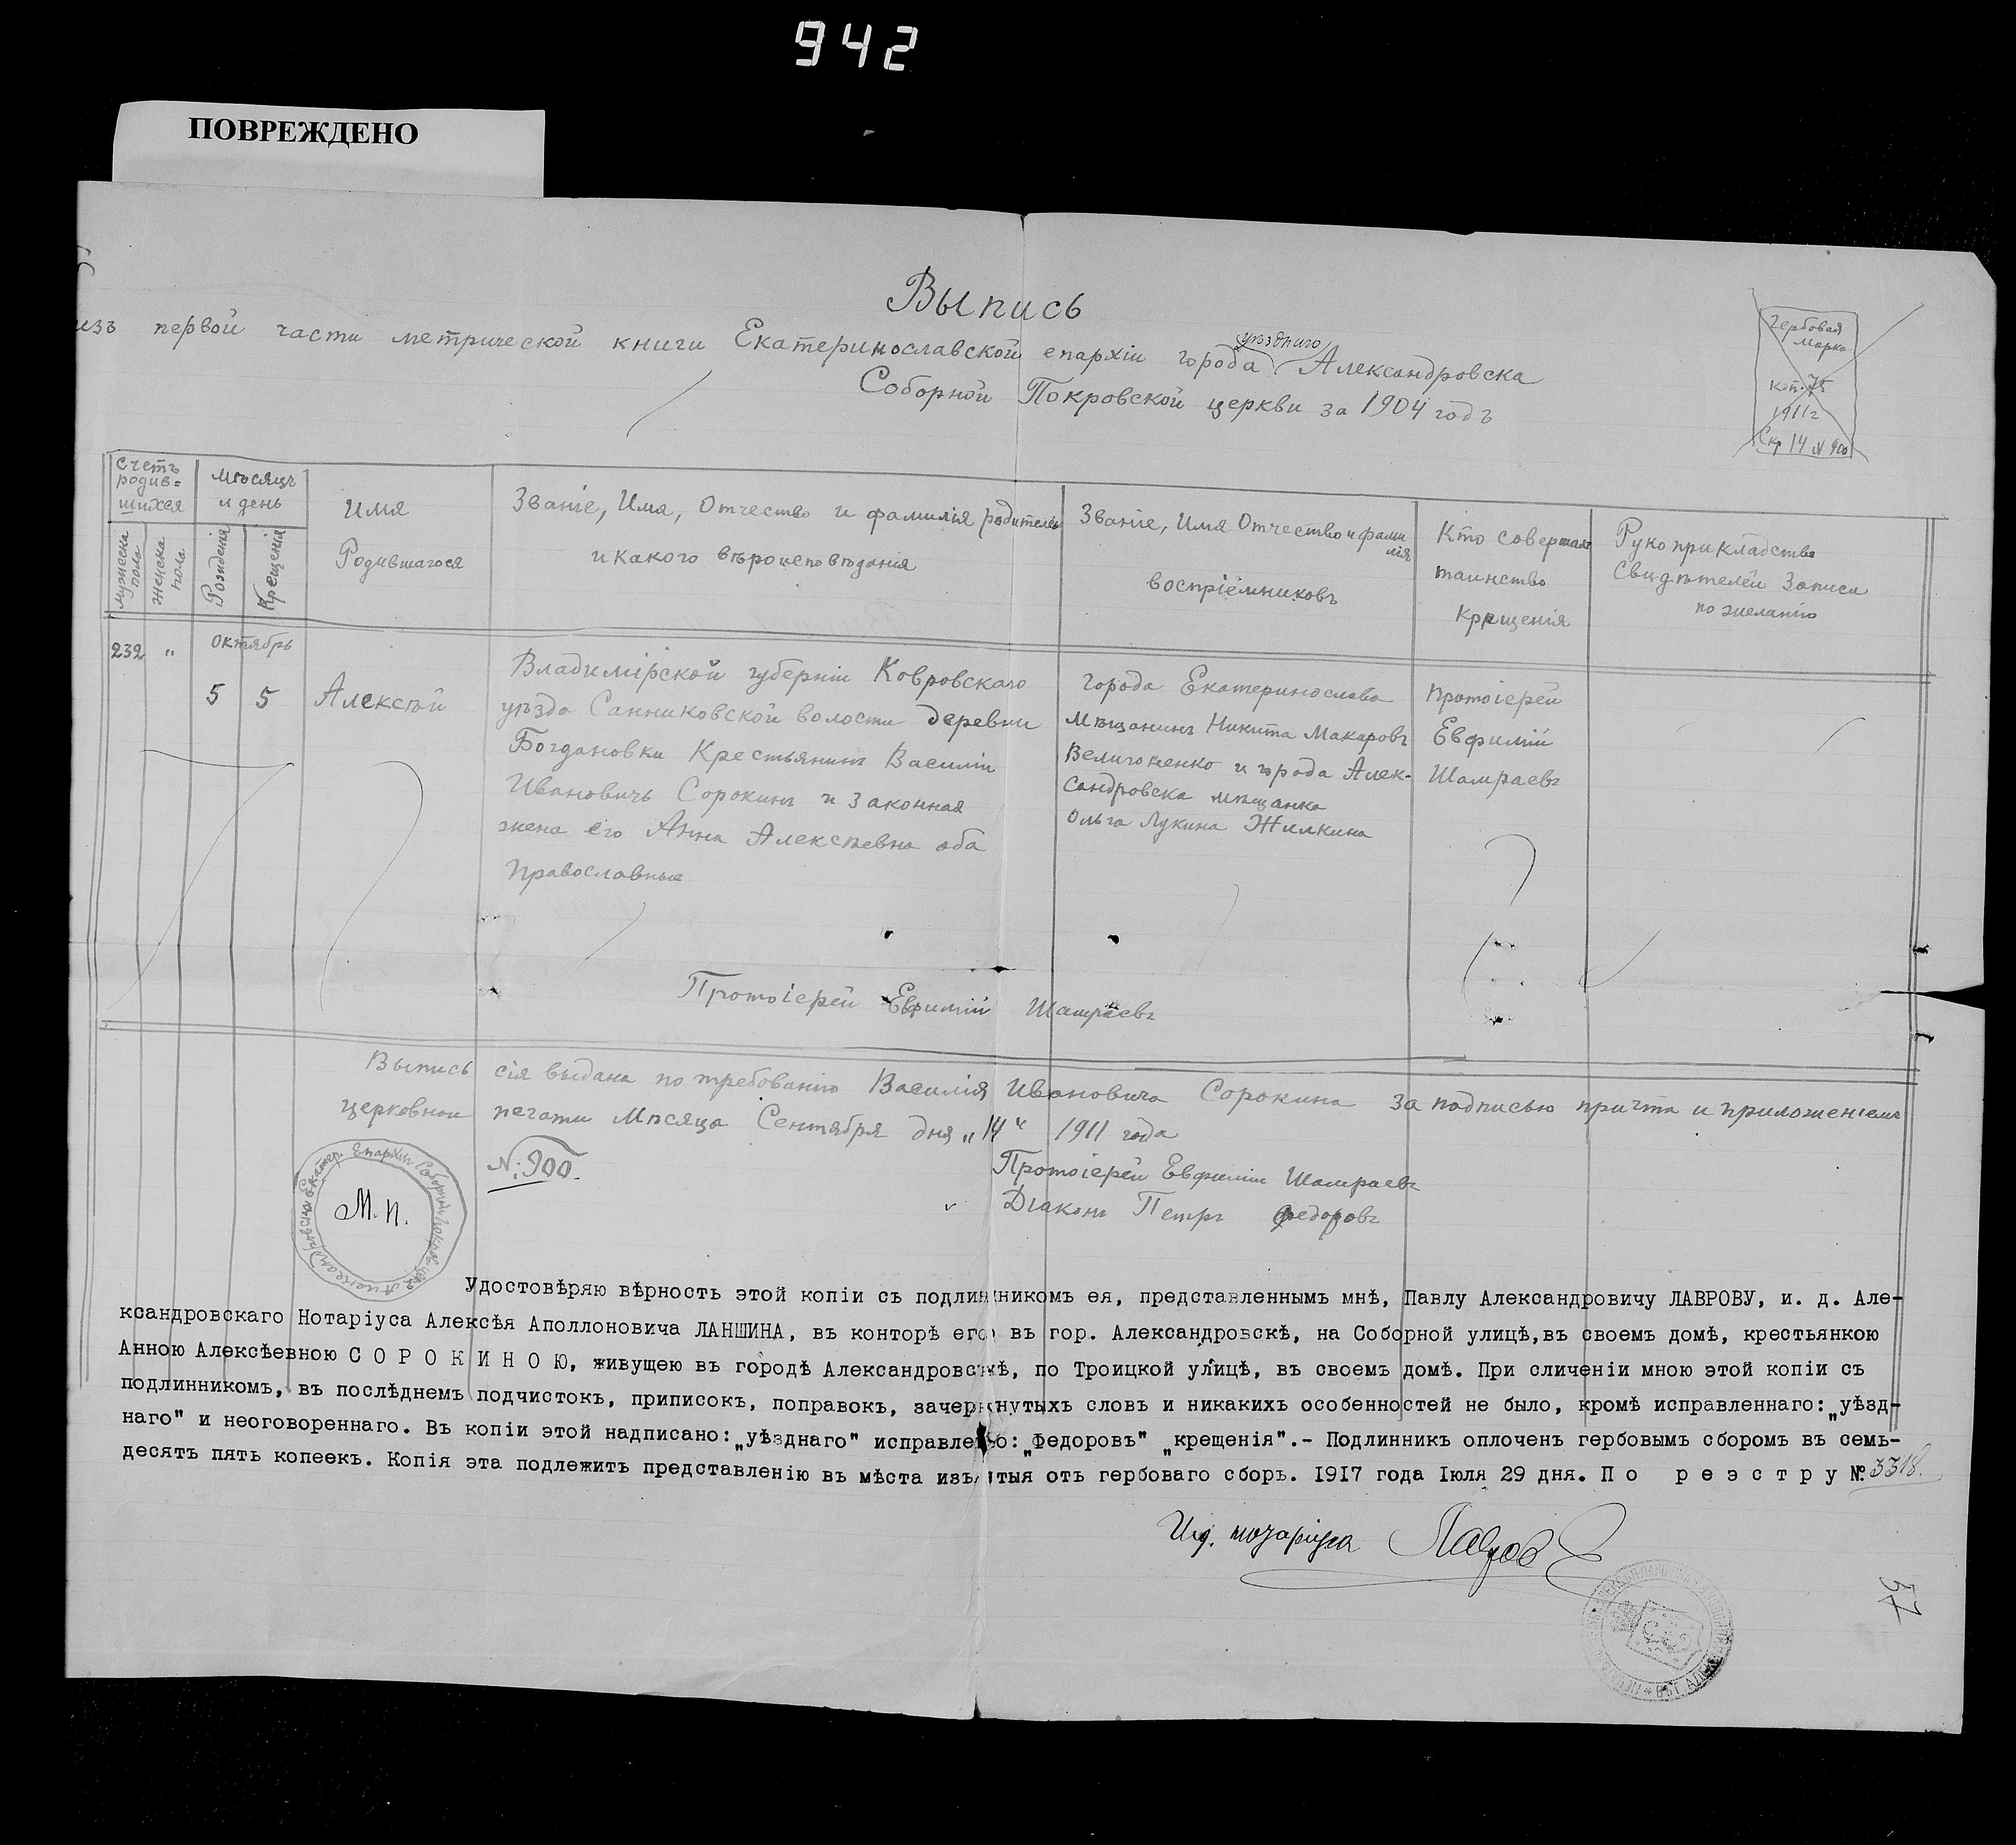 942
ПОВРЕЖДЕНО
Выпись
изъ первой части метрической книги Екатеринославской епархіи города уѣзднаго Александровска
Соборной Покровской церкви за 1904 годъ
Гербовая
марка
коп. 75
1911 г
Скр 14 № 900
Счетъ
родив=
шихся
Мѣсяцъ
и день
Мужеска
пола
Женска
пола
Рожденія
Крещенія
Имя
Родившагося
Званіе, Имя, Отчество и фамилія родителей
и какого вѣроисповѣданія
Званіе, Имя Отчество и фами
лія
воспріемниковъ
Кто совершалъ
таинство
Крещенія
Рукоприкладство
Свидѣтелей Записи
по желанію
232 „ Октябрь
5 5 Алексѣй
Владимірской губерніи Ковровскаго
уѣзда Санниковской волости деревни
Богдановки Крестьянинъ Василій
Ивановичъ Сорокинъ и законная
жена его Анна Алексѣевна оба
Православные
Города Екатеринослава
Мѣщанинъ Никита Макаровъ
Величоненко и города Алек-
сандровска мѣщанка
Ольга Лукина Жилкина
Протоіерей
Евфимій
Шамраевъ
Протоіерей Евфимій Шамраевъ
Выпись сія выдана по требованію Василія Ивановича Сорокина за подписью причта и приложеніемъ
церковной печати Мѣсяца Сентября дня „14“ 1911 года
№ 900.
Протоіерей Евфимій Шамраевъ
Діаконъ Петръ Федоровъ
М. П.
Удостовѣряю вѣрность этой копіи съ подлинникомъ ея, представленнымъ мнѣ, Павлу Александровичу ЛАВРОВУ, и. д. Але-
ксандровскаго Нотаріуса Алексѣя Аполлоновича ЛАНШИНА, въ конторѣ его въ гор. Александровскѣ, на Соборной улицѣ,въ своемъ домѣ, крестьянкою
Анною Алексѣевною С О Р О К И Н О Ю, живущею въ городѣ Александровскѣ, по Троицкой улицѣ, въ своемъ домѣ. При сличеніи мною этой копіи съ
подлинникомъ, въ послѣднемъ подчистокъ, приписокъ, поправокъ, зачеркнутыхъ словъ и никакихъ особенностей не было, кромѣ исправленнаго: „уѣзд-
наго" и неоговореннаго. Въ копіи этой надписано: „уѣзднаго" исправлено: „Федоровъ" „крещенія".- Подлинникъ оплоченъ гербовымъ сборомъ въ семь-
десятъ пять копеекъ. Копія эта подлежитъ представленію въ мѣста изъятыя отъ гербоваго сборь. 1917 года Іюля 29 дня. П о р е э с т р у № 3318.
И.д. нотаріуса Лавровъ
57